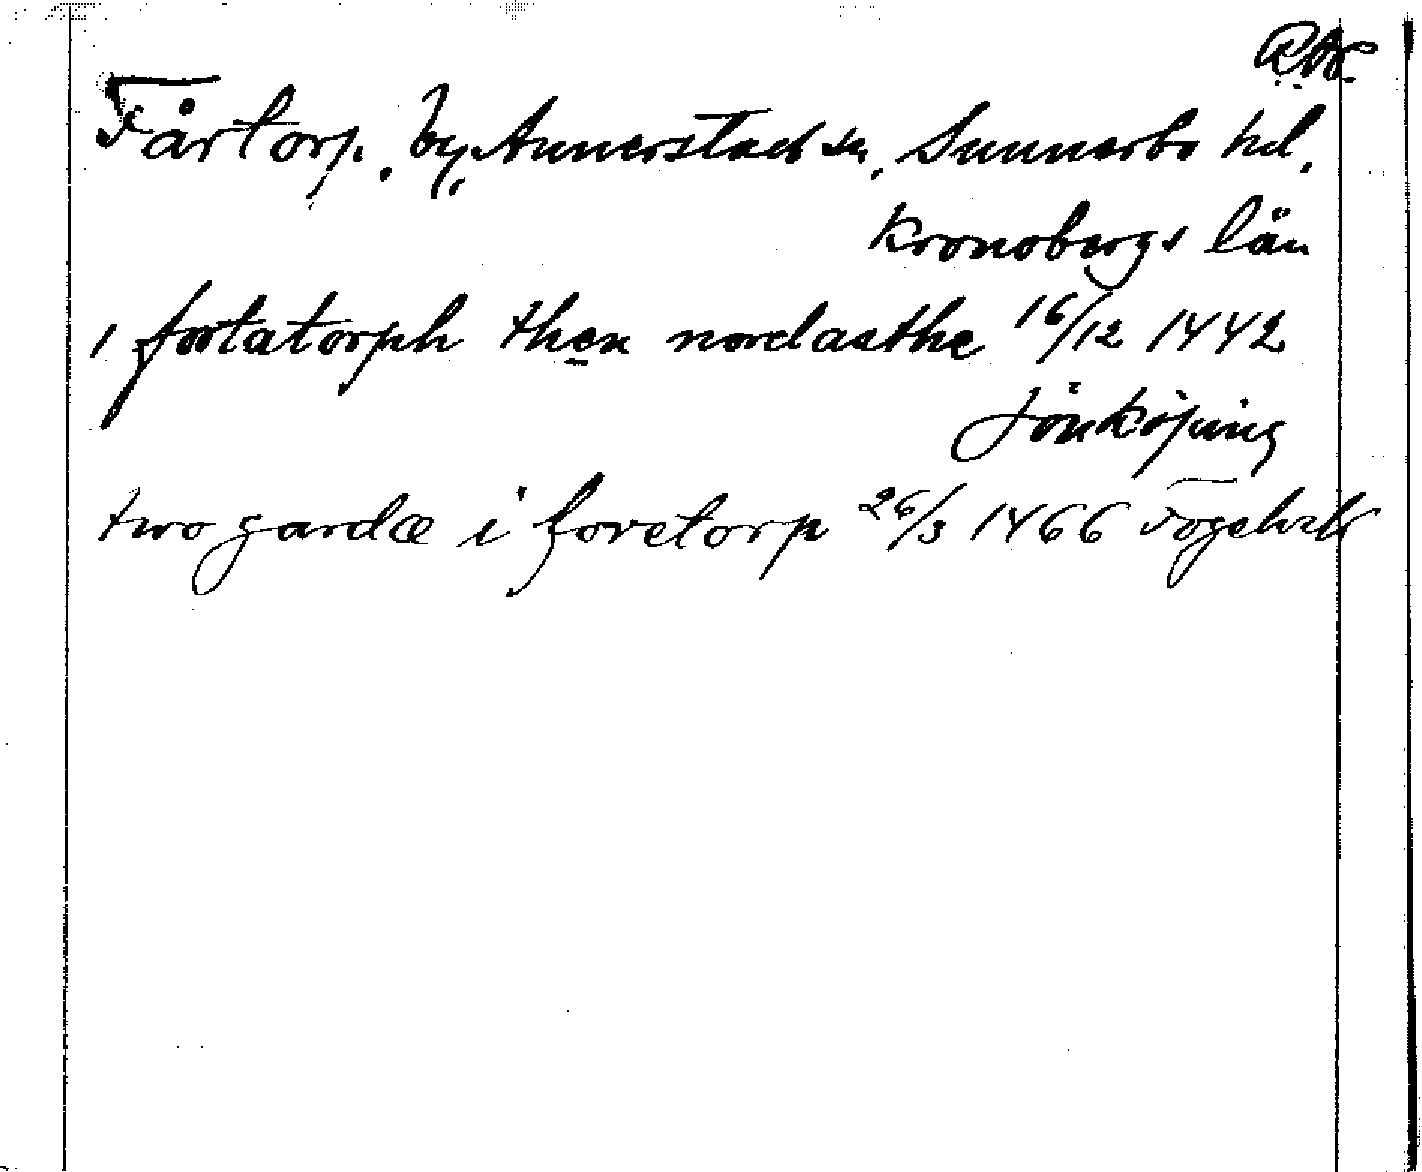 Fårtorp. by, Annerstad sn, Sunnerbo hd.
Kronobergs län
i footatorph then nordasthe 16/12 1442
Jönköping
two gardæ i foretorp 26/3 1466 Fogelvik